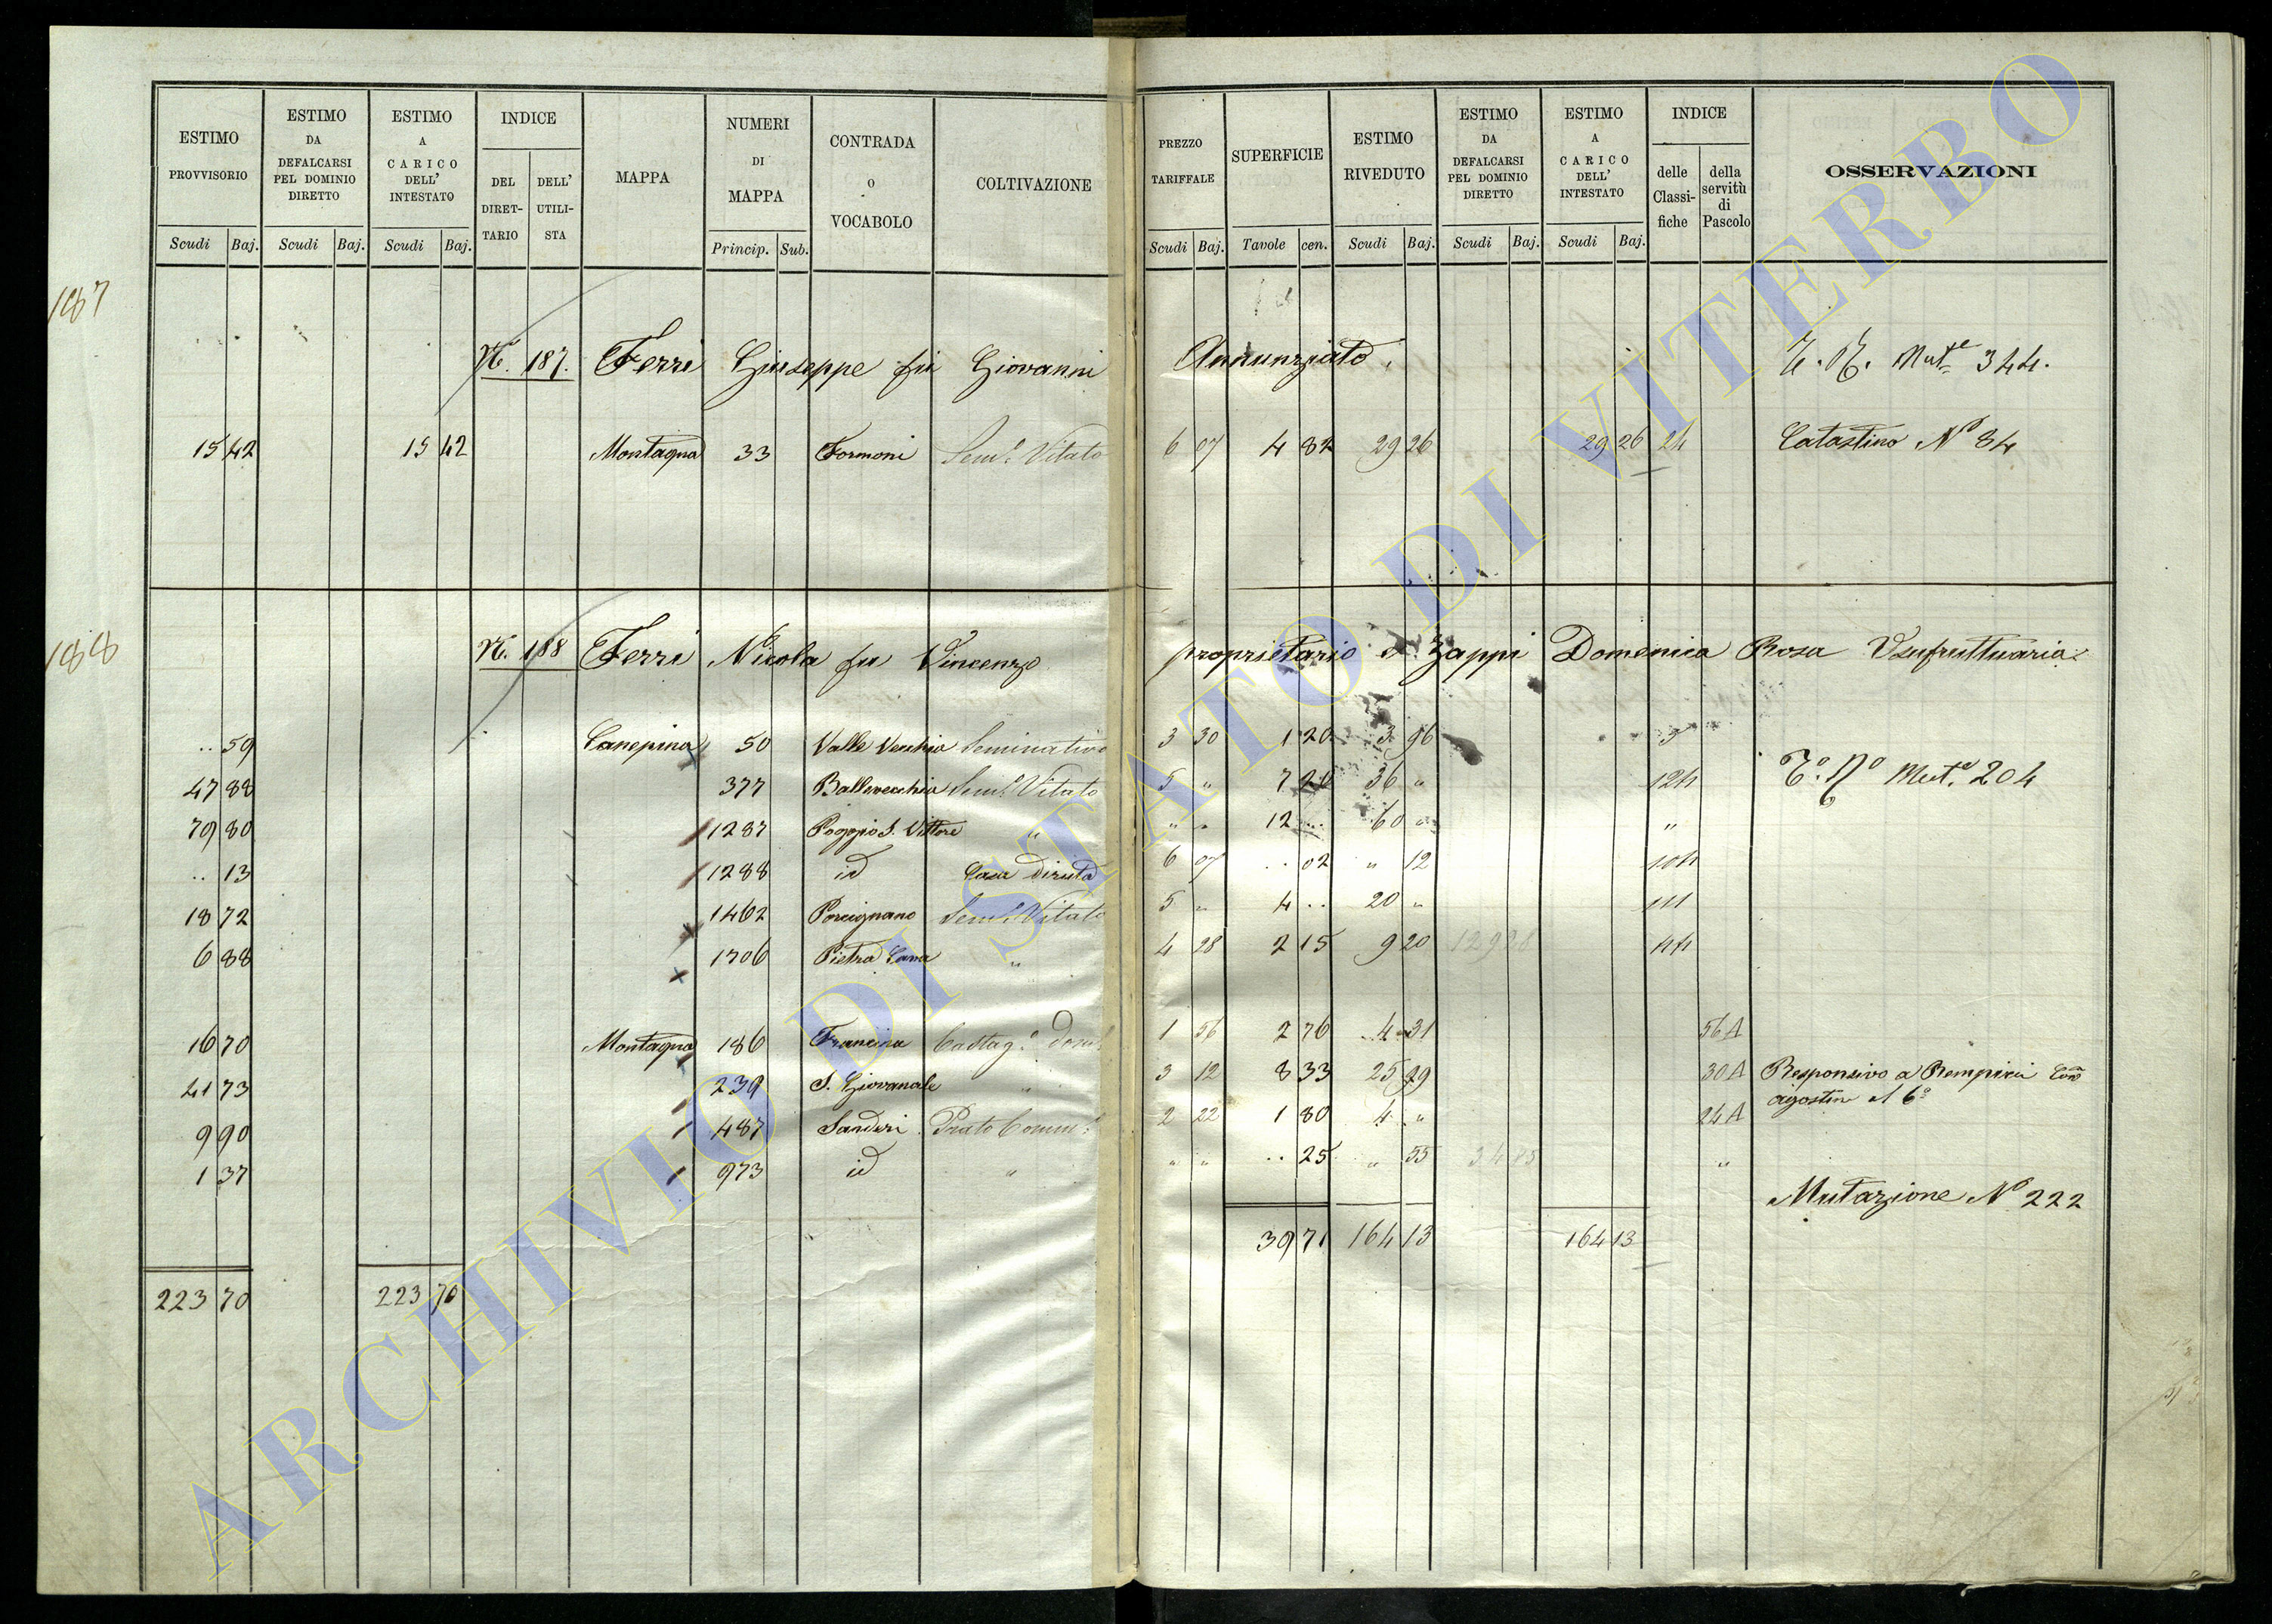 ESTIMO PROVVISORIO | ESTIMO DA DEFALCARSI PEL DOMINIO DIRETTO | ESTIMO A CARICO DELL' INTESTATO | INDICE DEL DIRETTARIO | DELL' UTILISTA | MAPPA | NUMERI DI MAPPA | CONTRADA o VOCABOLO | COLTIVAZIONE | PREZZO TARIFFALE | SUPERFICIE | ESTIMO RIVEDUTO | ESTIMO DA DEFALCARSI PEL DOMINIO DIRETTO | ESTIMO A CARICO DELL' INTESTATO | INDICE delle Classifiche | della servitù di Pascolo | OSSERVAZIONI
Scudi Baj. Scudi Baj. Scudi Baj. Princip. Sub. Scudi Baj. Tavole cen. Scudi Baj. Scudi Baj. Scudi Baj.
187
N. 187. Ferri Giuseppe fu Giovanni Annunziato. 344.
15 42 15 42 Montagna 33 Formoni Sem.e Vitato 6 07 4 82 29 26 29 26 24 Catastino N° 84
188
N. 188 Ferri Nicola fu Vincenzo proprietario e Zappi Domenica Rosa Usufruttuaria
.. 59 Canepina 50 Valle Vecchia Seminativo 3 30 1 20 3 96 9
47 88 377 Ballevecchia Sem.e Vitato 5 " 7 20 36 " 124 Mut.e 204
79 80 1287 Poggio S. Vittore " " " 12 .. 60 " "
.. 13 1288 id Casa diruta 6 07 .. 02 " 12 104
18 72 1462 Porcignano Sem.e Vitato 5 " 4 .. 20 " 111
6 88 1706 Pietra Cava " 4 28 2 15 9 20 129 28 44
16 70 Montagna 186 Francina Castag.o 1 56 2 76 4 31 56A
41 73 239 S. Giovanale " 3 12 8 33 25 99 30A Responsivo a
agostin
9 90 487 Sanderi Prato 2 22 1 80 4 " 24A
1 37 973 id " " " .. 25 " 55 34 85 "
Mutazione N° 222
39 71 164 13 164 13
223 70 223 70
ARCHIVIO DI STATO DI VITERBO